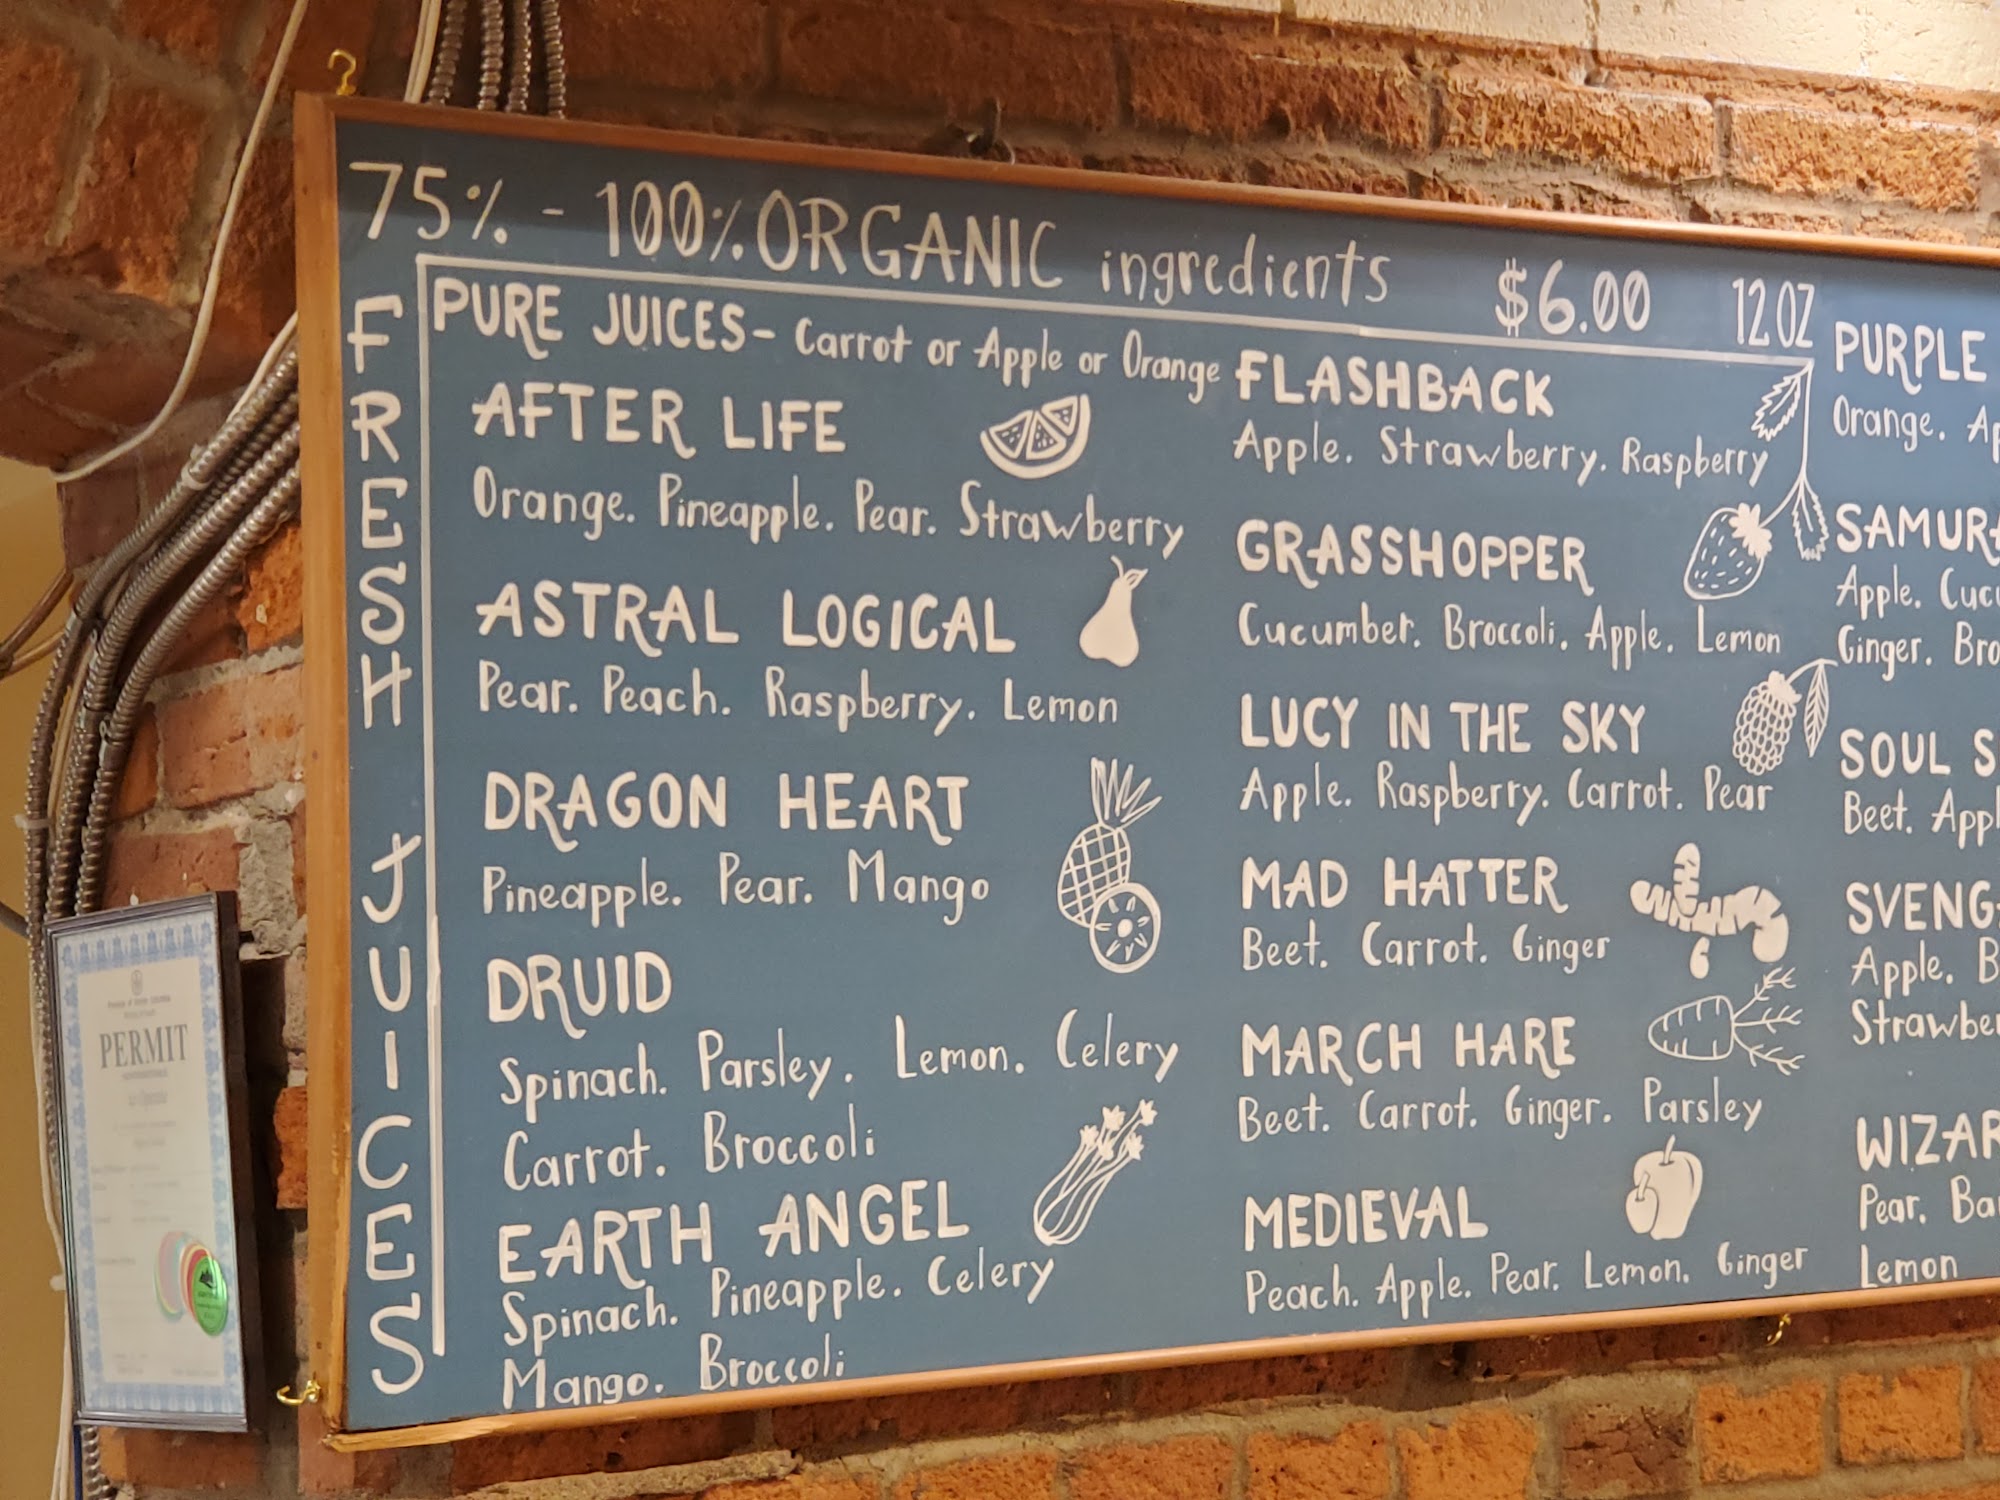 75% - 100% ORGANIC ingredients $6.00 12 OZ
FRESH JUICES
PURE JUICES - Carrot or Apple or Orange
AFTER LIFE
Orange. Pineapple. Pear. Strawberry
ASTRAL LOGICAL
Pear. Peach. Raspberry. Lemon
DRAGON HEART
Pineapple. Pear. Mango
DRUID
Spinach. Parsley. Lemon. Celery
Carrot. Broccoli
EARTH ANGEL
Spinach. Pineapple. Celery
Mango. Broccoli
FLASHBACK
Apple. Strawberry. Raspberry
GRASSHOPPER
Cucumber. Broccoli. Apple. Lemon
LUCY IN THE SKY
Apple. Raspberry. Carrot. Pear
MAD HATTER
Beet. Carrot. Ginger
MARCH HARE
Beet. Carrot. Ginger. Parsley
MEDIEVAL
Peach. Apple. Pear. Lemon. Ginger
PURPLE
Orange.
Apple.
Ginger.
SOUL
Beet.
Apple.
Pear.
Lemon
PERMIT